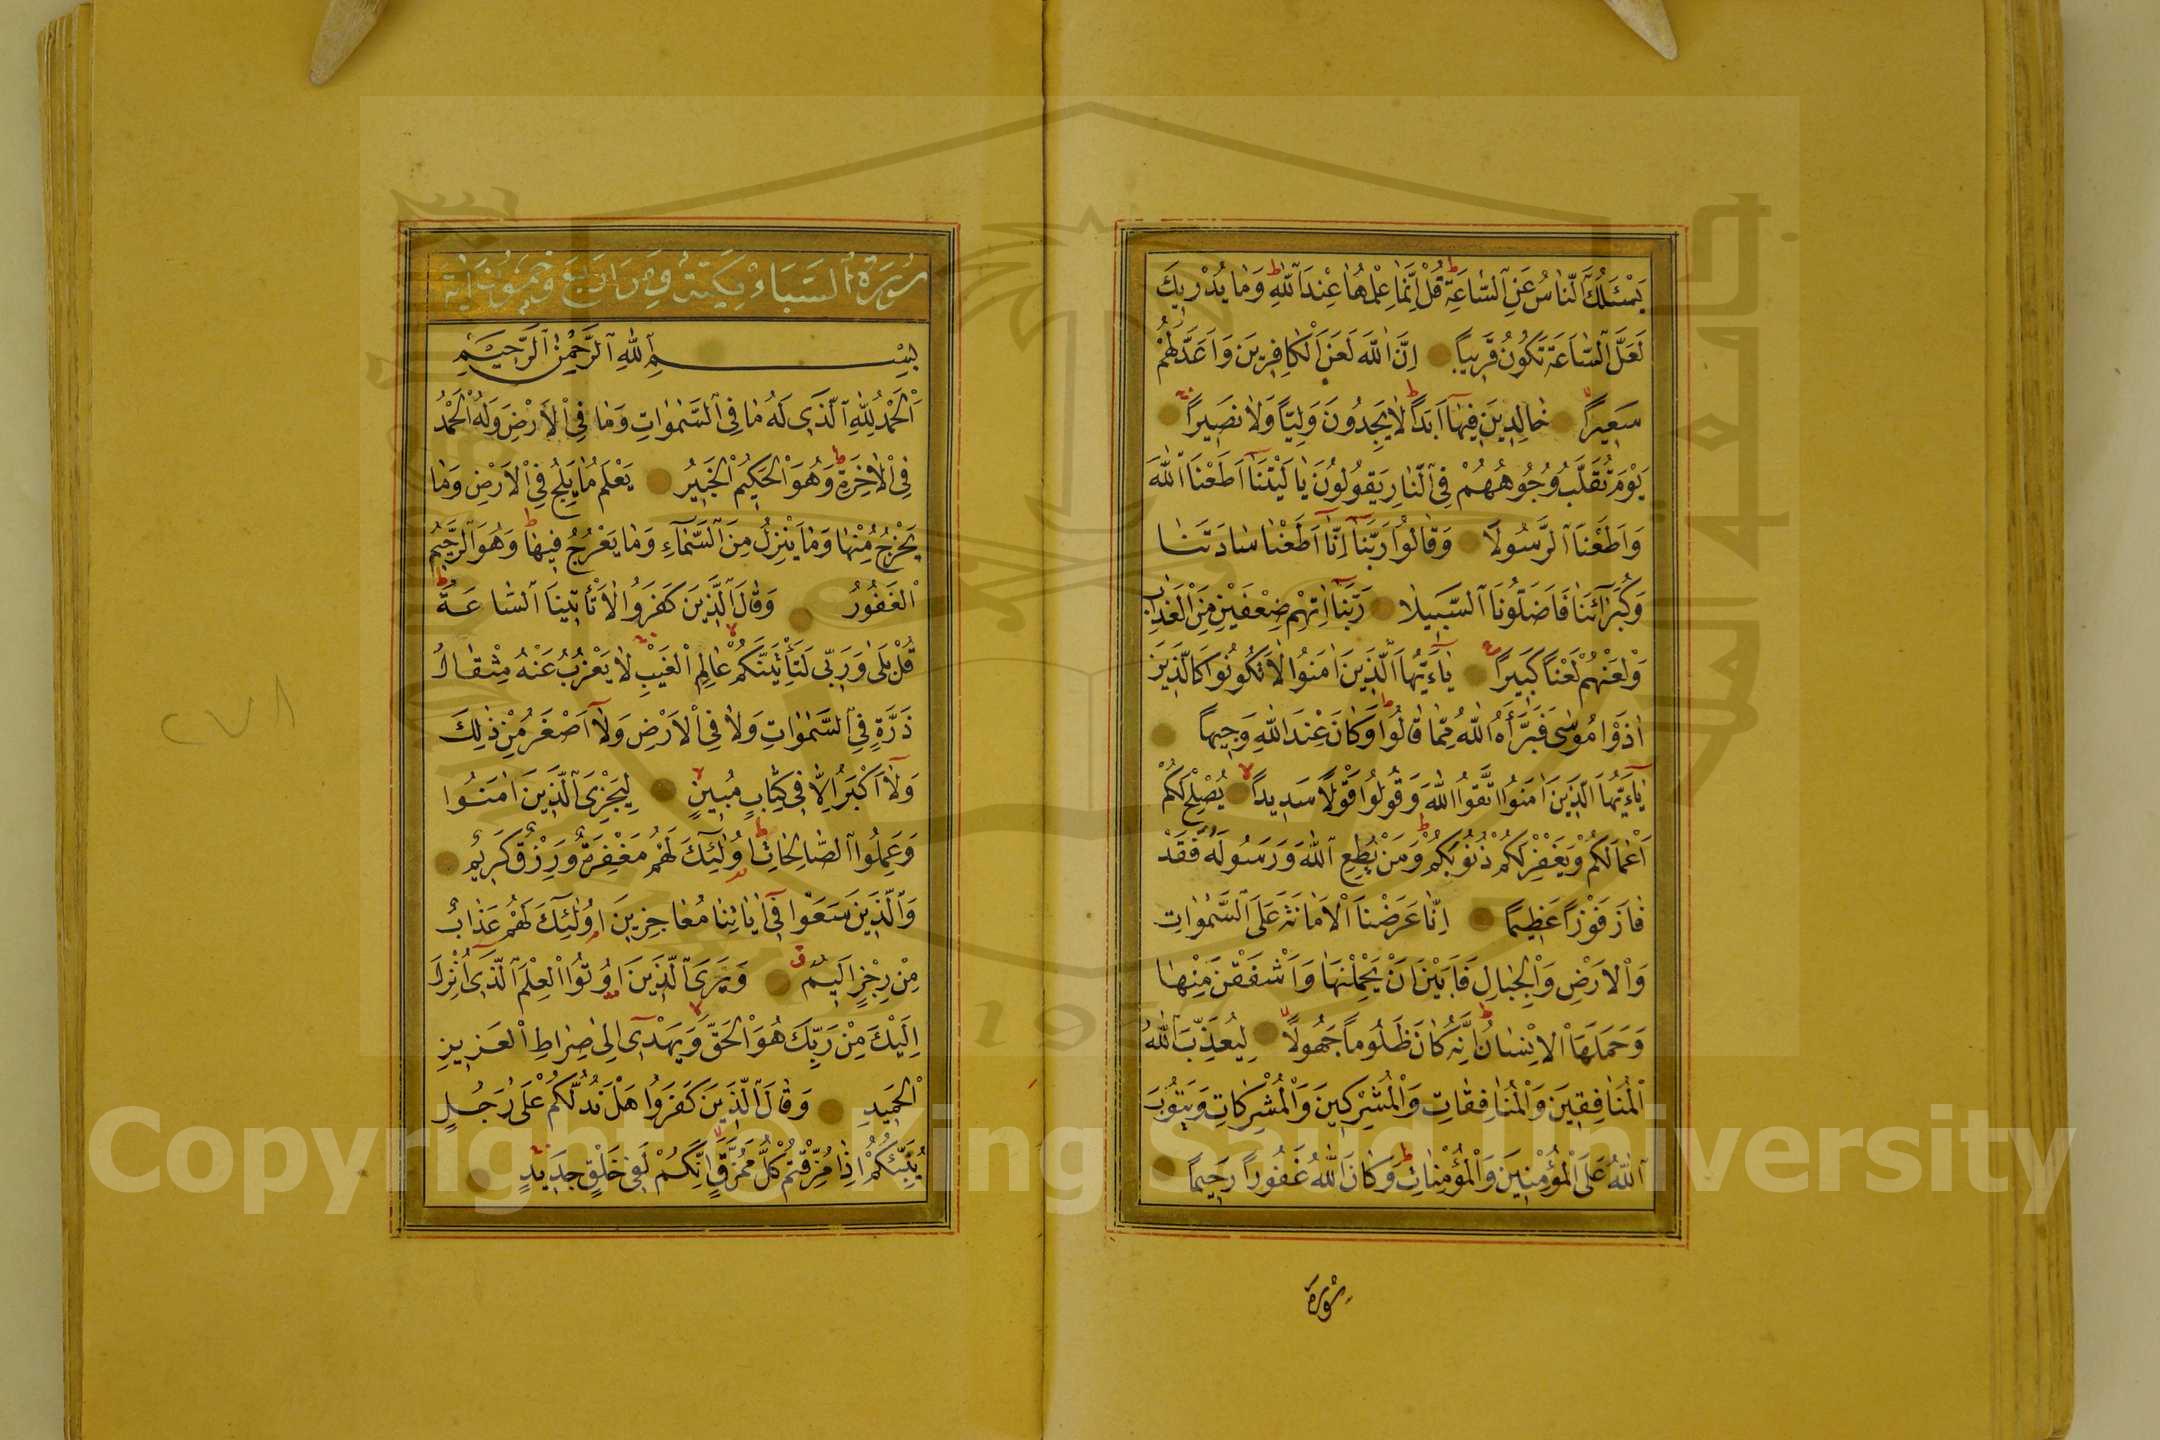 يَسْـَٔلُكَ ٱلنَّاسُ عَنِ ٱلسَّاعَةِ قُلْ اِنَّمَا عِلْمُهَا عِنْدَ ٱللّٰهِ وَمَا يُدْرِيكَ
لَعَلَّ ٱلسَّاعَةَ تَكُونُ قَرِيبًا اِنَّ اللّٰهَ لَعَنَ ٱلْكَافِرِينَ وَاَعَدَّ لَهُمْ
سَعِيرًا خَالِدِينَ فِيهَآ اَبَدًا لَا يَجِدُونَ وَلِيًّا وَلَا نَصِيرًا
يَوْمَ تُقَلَّبُ وُجُوهُهُمْ فِي ٱلنَّارِ يَقُولُونَ يَا لَيْتَنَآ اَطَعْنَا ٱللّٰهَ
وَاَطَعْنَا ٱلرَّسُولَا وَقَالُوا رَبَّنَآ اِنَّآ اَطَعْنَا سَادَتَنَا
وَكُبَرَآءَنَا فَاَضَلُّونَا ٱلسَّبِيلَا رَبَّنَآ اٰتِهِمْ ضِعْفَيْنِ مِنَ ٱلْعَذَابِ
وَٱلْعَنْهُمْ لَعْنًا كَبِيرًا يَآ اَيُّهَا ٱلَّذِينَ اٰمَنُوا لَا تَكُونُوا كَٱلَّذِينَ
اٰذَوْا مُوسٰى فَبَرَّاَهُ ٱللّٰهُ مِمَّا قَالُوا وَكَانَ عِنْدَ ٱللّٰهِ وَجِيهًا
يَآ اَيُّهَا ٱلَّذِينَ اٰمَنُوا ٱتَّقُوا ٱللّٰهَ وَقُولُوا قَوْلًا سَدِيدًا يُصْلِحْ لَكُمْ
اَعْمَالَكُمْ وَيَغْفِرْ لَكُمْ ذُنُوبَكُمْ وَمَنْ يُطِعِ ٱللّٰهَ وَرَسُولَهُ فَقَدْ
فَازَ فَوْزًا عَظِيمًا اِنَّا عَرَضْنَا ٱلْاَمَانَةَ عَلَى ٱلسَّمٰوَاتِ
وَٱلْاَرْضِ وَٱلْجِبَالِ فَاَبَيْنَ اَنْ يَحْمِلْنَهَا وَاَشْفَقْنَ مِنْهَا
وَحَمَلَهَا ٱلْاِنْسَانُ اِنَّهُ كَانَ ظَلُومًا جَهُولًا لِيُعَذِّبَ ٱللّٰهُ
ٱلْمُنَافِقِينَ وَٱلْمُنَافِقَاتِ وَٱلْمُشْرِكِينَ وَٱلْمُشْرِكَاتِ وَيَتُوبَ
ٱللّٰهُ عَلَى ٱلْمُؤْمِنِينَ وَٱلْمُؤْمِنَاتِ وَكَانَ ٱللّٰهُ غَفُورًا رَحِيمًا
سُورَة
سُورَةُ ٱلسَّبَاءْ مَكِّيَّةٌ وَهِيَ اَرْبَعَ وَخَمْسُونَ اٰيَة
بِسْمِ ٱللّٰهِ ٱلرَّحْمٰنِ ٱلرَّحِيمِ
ٱلْحَمْدُ لِلّٰهِ ٱلَّذِي لَهُ مَا فِي ٱلسَّمٰوَاتِ وَمَا فِي ٱلْاَرْضِ وَلَهُ ٱلْحَمْدُ
فِي ٱلْاٰخِرَةِ وَهُوَ ٱلْحَكِيمُ ٱلْخَبِيرُ يَعْلَمُ مَا يَلِجُ فِي ٱلْاَرْضِ وَمَا
يَخْرُجُ مِنْهَا وَمَا يَنْزِلُ مِنَ ٱلسَّمَآءِ وَمَا يَعْرُجُ فِيهَا وَهُوَ ٱلرَّحِيمُ
ٱلْغَفُورُ وَقَالَ ٱلَّذِينَ كَفَرُوا لَا تَأْتِينَا ٱلسَّاعَةُ
قُلْ بَلٰى وَرَبِّي لَتَأْتِيَنَّكُمْ عَالِمِ ٱلْغَيْبِ لَا يَعْزُبُ عَنْهُ مِثْقَالُ
ذَرَّةٍ فِي ٱلسَّمٰوَاتِ وَلَا فِي ٱلْاَرْضِ وَلَآ اَصْغَرُ مِنْ ذٰلِكَ
وَلَآ اَكْبَرُ اِلَّا فِي كِتَابٍ مُبِينٍ لِيَجْزِيَ ٱلَّذِينَ اٰمَنُوا
وَعَمِلُوا ٱلصَّالِحَاتِ اُولٰٓئِكَ لَهُمْ مَغْفِرَةٌ وَرِزْقٌ كَرِيمٌ
وَٱلَّذِينَ سَعَوْا فِيٓ اٰيَاتِنَا مُعَاجِزِينَ اُولٰٓئِكَ لَهُمْ عَذَابٌ
مِنْ رِجْزٍ اَلِيمٌ وَيَرَى ٱلَّذِينَ اُوتُوا ٱلْعِلْمَ ٱلَّذِيٓ اُنْزِلَ
اِلَيْكَ مِنْ رَبِّكَ هُوَ ٱلْحَقَّ وَيَهْدِيٓ اِلٰى صِرَاطِ ٱلْعَزِيزِ
ٱلْحَمِيدِ وَقَالَ ٱلَّذِينَ كَفَرُوا هَلْ نَدُلُّكُمْ عَلٰى رَجُلٍ
يُنَبِّئُكُمْ اِذَا مُزِّقْتُمْ كُلَّ مُمَزَّقٍ اِنَّكُمْ لَفِي خَلْقٍ جَدِيدٍ
٢٧٨
Copyright © King Saud University